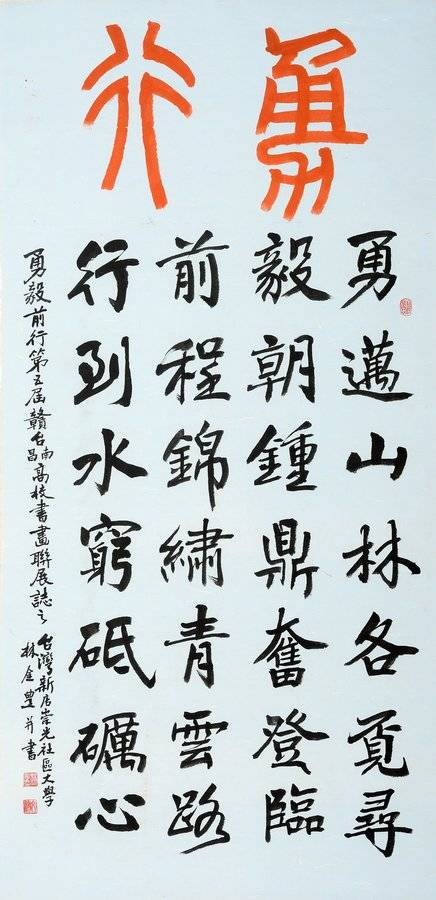 勇行
勇邁山林各覔尋
毅朝鍾鼎奮登臨
前程錦繡青雲路
行到水窮砥礪心
勇毅前行第五屆贛台南昌高校書畫聯展誌之
台灣新店崇光社區大學
林金豊并書